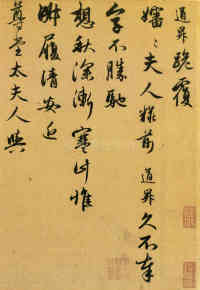 道昇跪覆
嬸〻夫人糚前道昇久不奉
字不勝馳
想秋深漸寒計惟
淑履清安近
尊堂太夫人與